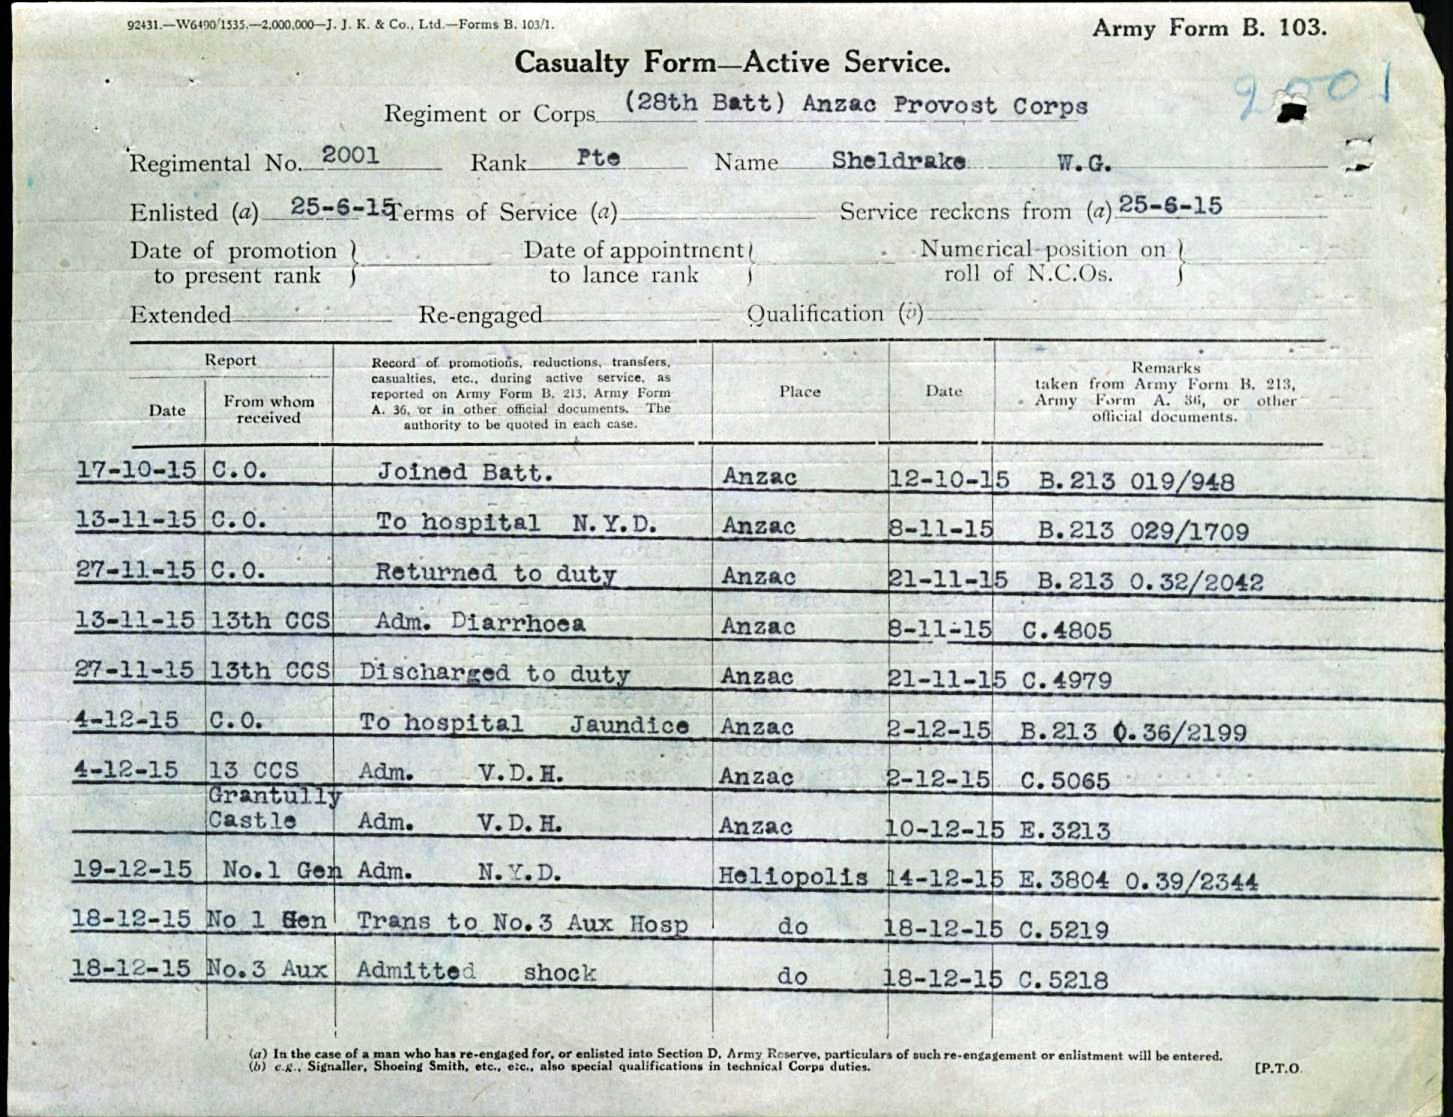 92431.—W6490/1535.—2,000,000—J. J. K. & Co., Ltd.—Forms B. 103/1.
Army Form B. 103.
Casualty Form—Active Service.
2001
Regiment or Corps (28th Batt) Anzac Provost Corps
Regimental No. 2001 Rank Pte Name Sheldrake W.G.
Enlisted (a) 25-6-15 Terms of Service (a) Service reckons from (a) 25-6-15
Date of promotion to present rank } Date of appointment to lance rank } Numerical position on roll of N.C.Os. }
Extended Re-engaged Qualification (b)
Report
Date
From whom received
Record of promotions, reductions, transfers,
casualties, etc., during active service, as
reported on Army Form B. 213, Army Form
A. 36, or in other official documents. The
authority to be quoted in each case.
Place
Date
Remarks
taken from Army Form B. 213,
Army Form A. 36, or other
official documents.
17-10-15 C.O. Joined Batt. Anzac 12-10-15 B.213 019/948
13-11-15 C.O. To hospital N.Y.D. Anzac 8-11-15 B.213 029/1709
27-11-15 C.O. Returned to duty Anzac 21-11-15 B.213 0.32/2042
13-11-15 13th CCS Adm. Diarrhoea Anzac 8-11-15 C.4805
27-11-15 13th CCS Discharged to duty Anzac 21-11-15 C.4979
4-12-15 C.O. To hospital Jaundice Anzac 2-12-15 B.213 0.36/2199
4-12-15 13 CCS Adm. V.D.H. Anzac 2-12-15 C.5065
Grantully
Castle Adm. V.D.H. Anzac 10-12-15 E.3213
19-12-15 No.1 Gen Adm. N.Y.D. Heliopolis 14-12-15 E.3804 0.39/2344
18-12-15 No 1 Gen Trans to No.3 Aux Hosp do 18-12-15 C.5219
18-12-15 No.3 Aux Admitted shock do 18-12-15 C.5218
(a) In the case of a man who has re-engaged for, or enlisted into Section D. Army Reserve, particulars of such re-engagement or enlistment will be entered.
(b) e.g., Signaller, Shoeing Smith, etc., etc., also special qualifications in technical Corps duties.
[P.T.O.